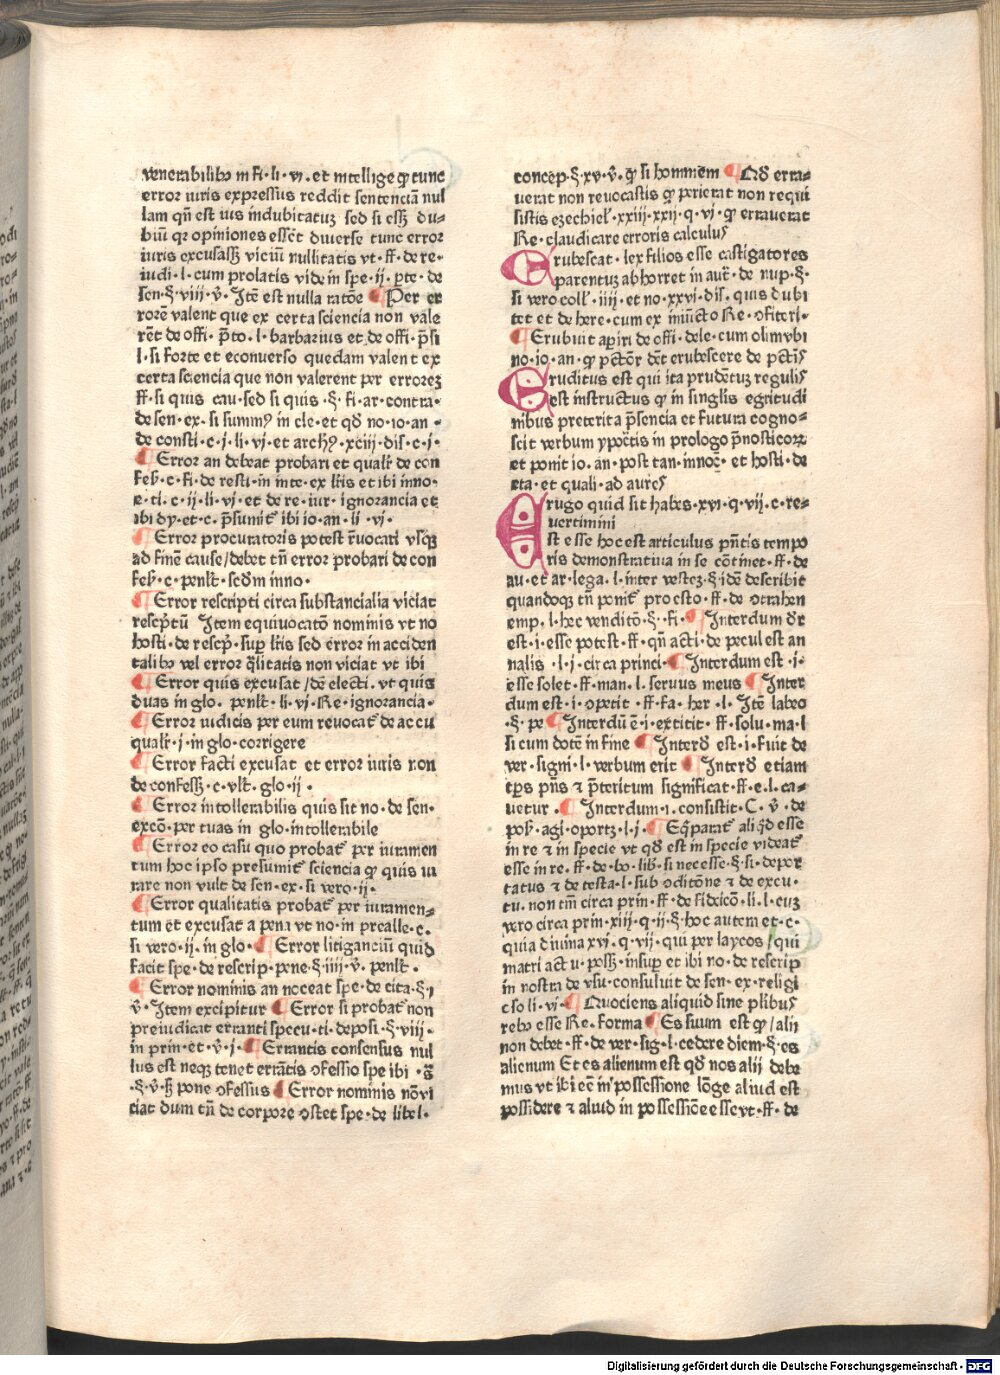 venerabilibꝫ in fi·li·vj. et intellige ꝙ tunc
error iuris expressus reddit sentenciā nul
lam qn̄ est ius indubitatuꝫ sed si essꝫ du⸗
biū qꝛ opiniones essēt diuerse tunc error
iuris excusassꝫ viciū nullitatis vt·ff·de re⸗
iudi·l·cum prolatis vide in spe·ij·p̄te·de
sen·§·viij·v̄·Itē est nulla ratōe ¶ Per er
rorē valent que ex certa sciencia non vale
rēt de offi·p̄to·l·barbarius et de offi·p̄si
l·si forte et econuerso quedam valent ex
certa sciencia que non valerent per erroreꝫ
ff·si quis cau·sed si quis·§·fi·ar·contra·
de sen·ex·si summꝰ in cle·et qđ no·io·an·
de consti·c·j·li·vj·et archꝰ·xciij·dis·c·j·
¶ Error an debeat probari et qualr̄ de con
fesꝫ·c·fi·de resti·in inte·ex lr̄is et ibi inno·
e·ti·c·ij·li·vj·et de re·iur·ignorancia et
ibi dy·et·c·p̄sumit̄ ibi io·an·li·vj·
¶ Error procuratoris potest r̄uocari vsqꝫ
ad finē cause/debet tn̄ error probari de con
fesꝫ·c·penlt̄·scđm inno·
¶ Error rescripti circa substancialia viciat
rescp̄tū Item equiuocatō nominis vt no
hosti·de rescp̄·sup̄ lr̄is sed error in acciden
talibꝫ vel error q̄litatis non viciat vt ibi
¶ Error quis excusat/dē electi·vt quis
duas in glo·penlt̄·li·vj·Re·ignorancia·
¶ Error iudicis per eum reuocat̄ de accu
qualr̄·j·in glo·corrigere
¶ Error facti excusat et error iuris non
de confessꝫ·c·vlt̄·glo·ij·
¶ Error intollerabilis quis sit no·de sen·
excō·per tuas in glo·intollerabile
¶ Error eo casu quo probat̄ per iuramen
tum hoc ipso presumit̄ sciencia ꝙ quis iu
rare non vult de sen·ex·si vero·ij·
¶ Error qualitatis probat̄ per iuramen⸗
tum et excusat a pena vt no·in prealle·c·
si vero·ij·in glo·¶ Error litiganciū quid
facit spe·de rescrip·pene·§·iiij·v̄·penlt̄·
¶ Error nominis an noceat spe·de cita·§·j
v̄·Item excipitur ¶ Error si probat̄ non
preiudicat erranti specu·ti·deposi·§·viij·
in prin·et·v̄·j·¶ Errantis consensus nul
lus est neqꝫ tenet errātis ↄfessio spe ibi·§
·§·v̄·sꝫ pone ↄfessus ¶ Error nominis nō vi
ciat dum tn̄ de corpore ↄstet spe·de libel·
concep·§·xv·v̄·ꝙ si hominem ¶ Qđ erra⸗
uerat non reuocastis ꝙ perierat non requi
sistis ezechiel·xxiij·xxij·q·vj·ꝙ errauerat
Re·claudicare erroris calculus
Erubescat·lex filios esse castigatores
parentuꝫ abhorret in autꝭ·de nup·§·
si vero coll̄·iiij·et no·xxvi·dis·quis dubi
tet et de here·cum ex iniūcto Re·ↄfiteri·
¶ Erubuit ap̄iri de offi·dele·cum olim vbi
no·io·an·ꝙ pctōr dēt erubescere de pctīs
Eruditus est qui ita prudētuꝫ regulis
est instructus ꝙ in singlis egritudi
nibus preterita p̄sencia et futura cogno⸗
scit verbum ypoc̄tis in prologo p̄nosticoꝝ
et ponit io·an·post tan·innoc̄·et hosti·de
eta·et quali·ad aures
Erugo quid sit habes·xvi·q·vij·c·re⸗
uertimini
Est esse hoc est articulus pn̄tis tempo
ris demonstratiua in se cōtinet·ff·de
au·et ar·lega·l·inter vesteꝫ·§·idē describit
quandoqꝫ tn̄ ponit̄ pro ↄsto·ff·de ↄtrahen
emp·l·hec venditō·§·fi·¶ Interdum dꝛ
est·i·esse potest·ff·qn̄ acti·de pecul est an
nalis·l·j·circa princi·¶ Interdum est·i·
esse solet·ff·man·l·seruus meus ¶ Inter
dum est·i·ↄpetit·ff·fa·her·l·Itē labeo
·§·pe ¶ Interdū ē·i·extitit·ff·solu·ma·l
si cum dotē in fine ¶ Interđ est·i·fuit de
ver·signi·l·verbum erit ¶ Interđ etiam
tp̄s pn̄s ⁊ p̄teritum significat·ff·e·l·ca⸗
uetur·¶ Interdum·i·consistit·C·v̄·de
pos·agi·oportꝫ·l·j·¶ Eq̄parat̄ aliqđ esse
in re ⁊ in specie vt qđ est in specie videat̄
esse in re·ff·de·bo·lib·si necesse·§·si·depor
tatus ⁊ de testa·l·sub ↄditōne ⁊ de excu·
tu·non tm̄ circa prin·ff·de fideicō·li·l·cuꝫ
vero circa prin·xiij·q·ij·§·hoc autem et·c·
quia diuina xvj·q·vij·qui per laycos/qui
matri actu·possꝫ·insup̄ et ibi no·de rescrip
in nostra de vsu·consuluit de sen·ex·religi
c so li·vi·¶ Quociens aliquid sine plibus
rebꝫ esse Re·forma ¶ Es suum est ꝙ/alij
non debet·ff·de ver·sig·l·cedere diem·§·es
alienum Et es alienum est qđ nos alij debe
mus vt ibi eē in possessione lōge aliud est
possidere ⁊ aliud in possessiōe esse vt·ff·de
Digitalisierung gefördert durch die Deutsche Forschungsgemeinschaft - DFG